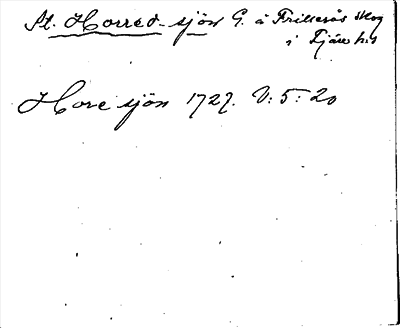 St. Horred-sjön G. å Frillesås skog
i Fjäre hd
Hore sjön 1727. V: 5: 20